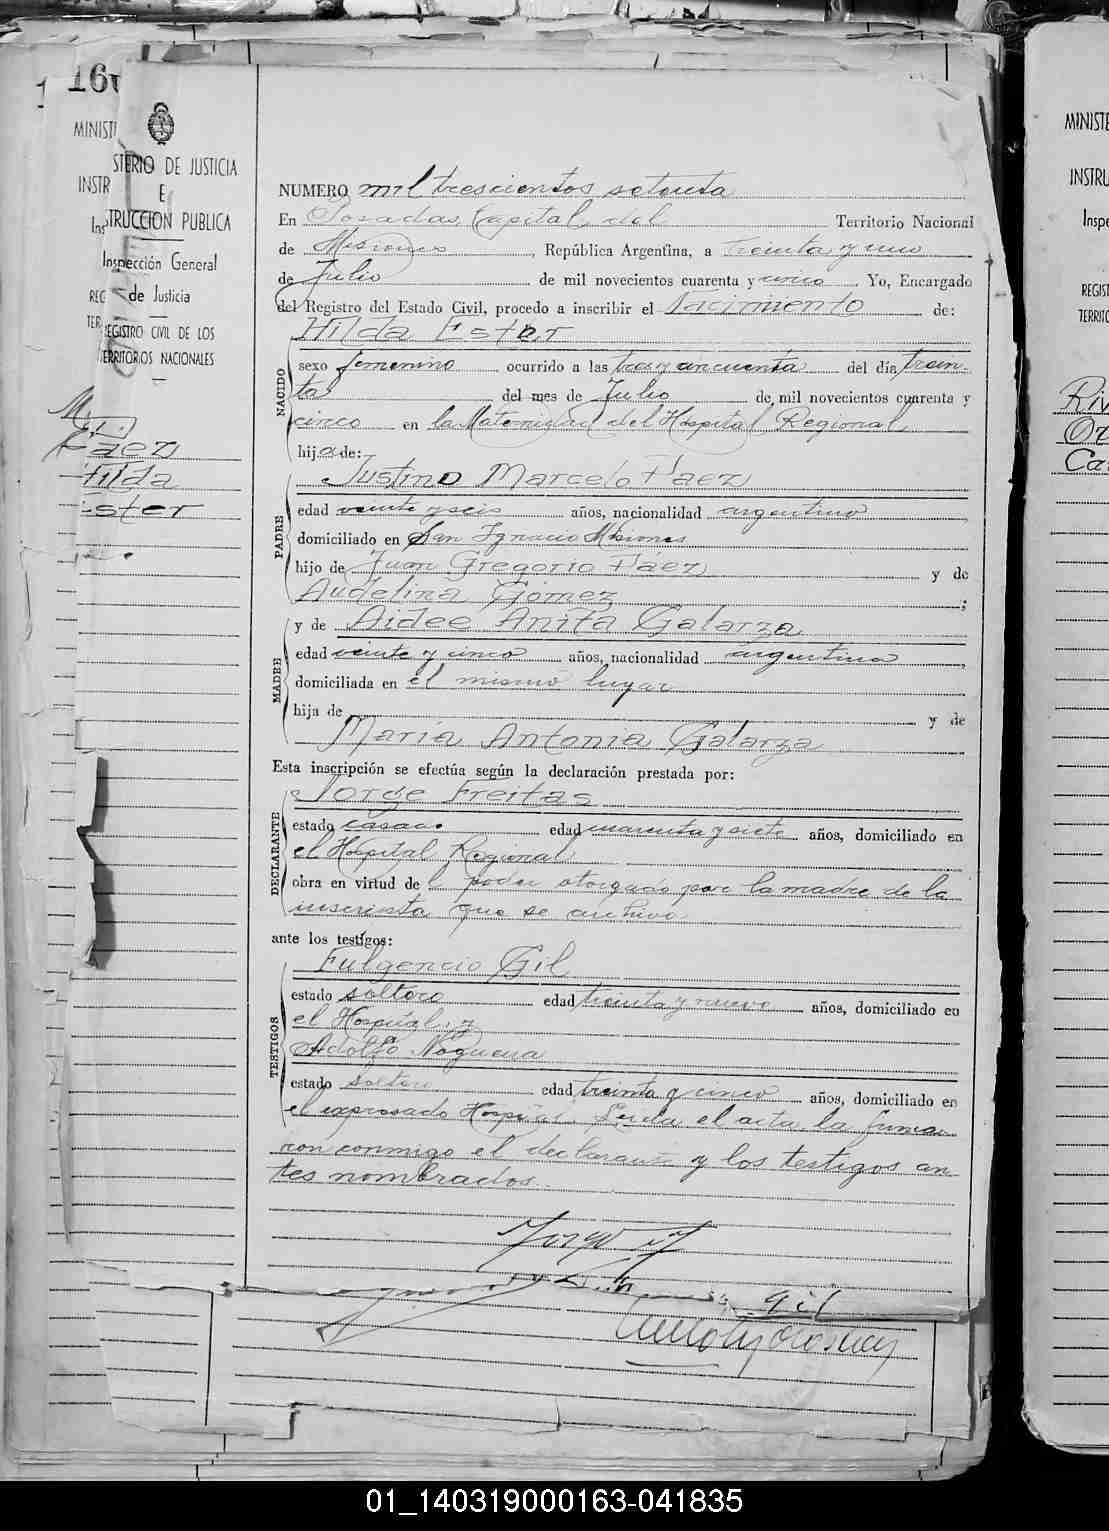 160
MINISTERIO DE JUSTICIA
E
INSTRUCCION PUBLICA
Inspección General
de Justicia
REGISTRO CIVIL DE LOS
TERRITORIOS NACIONALES
Páez
Hilda
Ester
NUMERO mil trescientos setenta
En Posadas Capital del Territorio Nacional
de Misiones, República Argentina, a treinta y uno
de Julio de mil novecientos cuarenta y cinco. Yo, Encargado
del Registro del Estado Civil, procedo a inscribir el Nacimiento de:
Hilda Ester
NACIDO
sexo femenino ocurrido a las tres y cincuenta del día trein-
ta del mes de Julio de mil novecientos cuarenta y
cinco en la Maternidad del Hospital Regional
hija de:
Justino Marcelo Paez
PADRE
edad veinte y seis años, nacionalidad argentino
domiciliado en San Ignacio Misiones
hijo de Juan Gregorio Páez y de
Audelina Gómez ;
y de Aidee Anita Galarza
MADRE
edad veinte y cinco años, nacionalidad argentina
domiciliada en el mismo lugar
hija de y de
María Antonia Galarza
Esta inscripción se efectúa según la declaración prestada por:
Jorge Freitas
DECLARANTE
estado casado edad cuarenta y siete años, domiciliado en
el Hospital Regional
obra en virtud del poder otorgado por la madre de la
inscripta que se archiva
ante los testigos:
Fulgencio Gil
TESTIGOS
estado soltero edad treinta y nueve años, domiciliado en
el Hospital, y
Adolfo Noguera
estado soltero edad treinta y cinco años, domiciliado en
el expresado Hospital. Leida el acta, la firma-
ron conmigo el declarante y los testigos an-
tes nombrados.
Gil
MINISTE
INSTRU
Inspe
REGIST
TERRITO
Riv
Ca
01_140319000163-041835